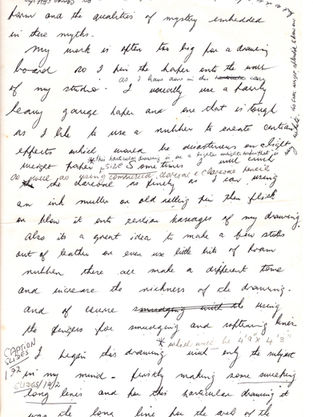 form and the qualities of mystery embedded
in these myths.
My work is often too big for a drawing
board so I pin the paper onto the wall
as I have done in this case
of my studio. I usually use a fairly
heavy gauge paper and one that is tough
as I like to use a rubber to create certain
effects which would be disastrous on slight
weight paper. Sometimes I will crush
as well as using compressed charcoal & charcoal pencil
the charcoal so finely so I can, using
an ink muller or old rolling pin then flick
or blow it onto certain passages of my drawing.
Also its a great idea to make a few stubs
out of leather or even use little bits of foam
rubber these all make a different tone
and increase the richness of the drawing.
and of course smudging with the using
the fingers for smudging and softening lines.
* which will be 4'9" x 4'3"
CAPTION
SLIDES
I begin this drawing with only the subject
in my mind - firstly making some sweeping
long lines and for this particular drawing it
was the long line for the